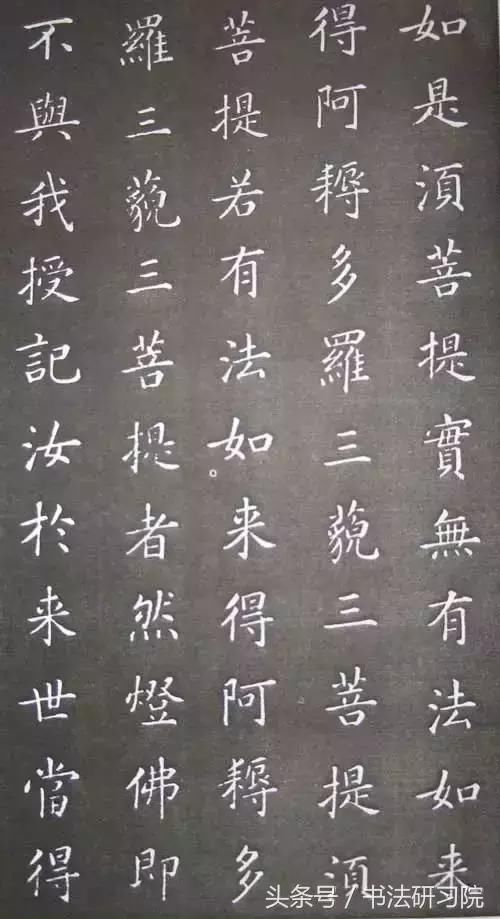 如是湏菩提實無有法如来
得阿耨多羅三藐三菩提湏
菩提若有法如来得阿耨多
羅三藐三菩提者然燈佛即
不與我授記汝於来世當得
头条号／书法研习院